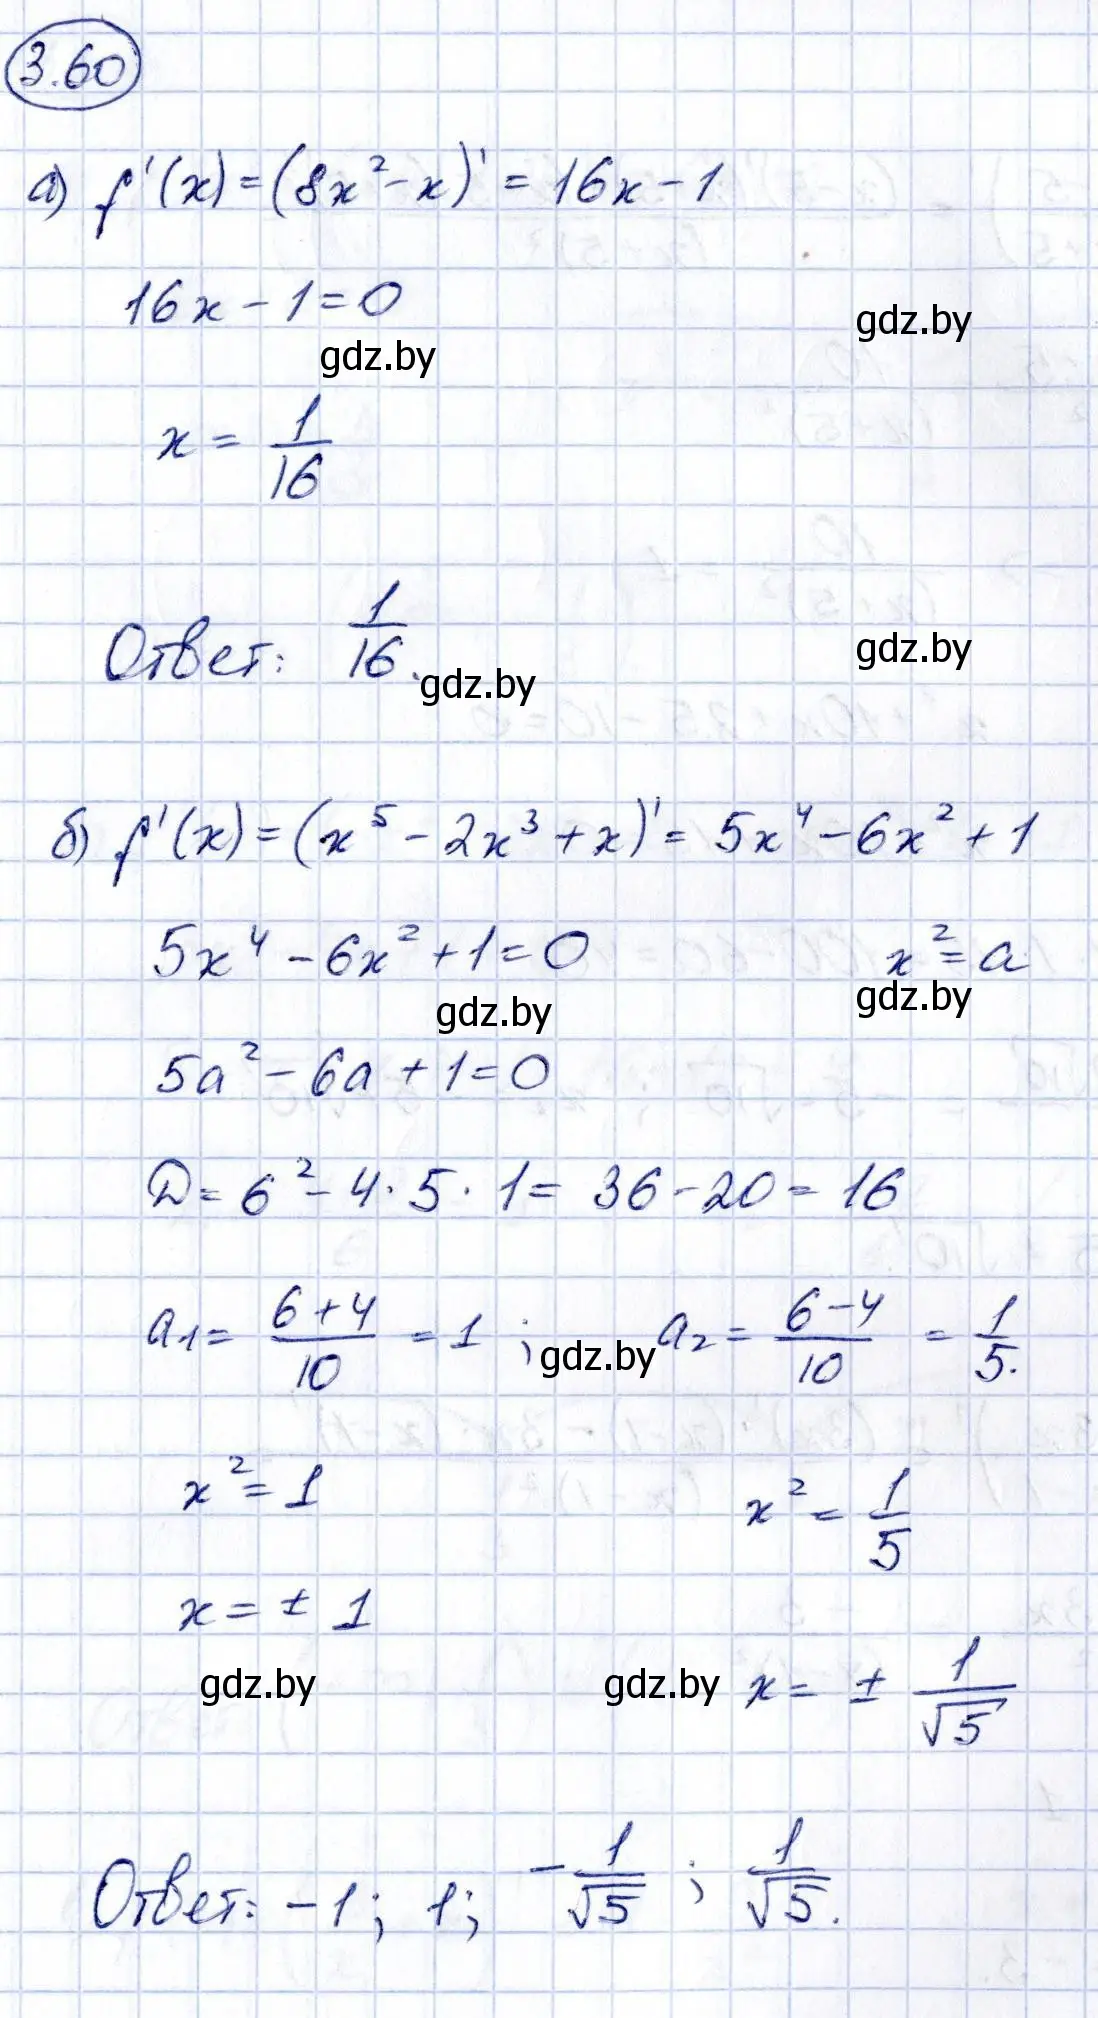 3.60
а) f'(x) = (8x² - x)' = 16x - 1
16x - 1 = 0
gdz.by
gdz.by
x = 1/16
Ответ: 1/16.
gdz.by
gdz.by
б) f'(x) = (x⁵ - 2x³ + x)' = 5x⁴ - 6x² + 1
5x⁴ - 6x² + 1 = 0 x² = a
gdz.by
gdz.by
5a² - 6a + 1 = 0
D = 6² - 4 · 5 · 1 = 36 - 20 = 16
a₁ = (6+4)/10 = 1 ; a₂ = (6-4)/10 = 1/5.
gdz.by
x² = 1 x² = 1/5
x = ± 1
gdz.by gdz.by x = ± 1/√5
Ответ: -1; 1; -1/√5 ; 1/√5.